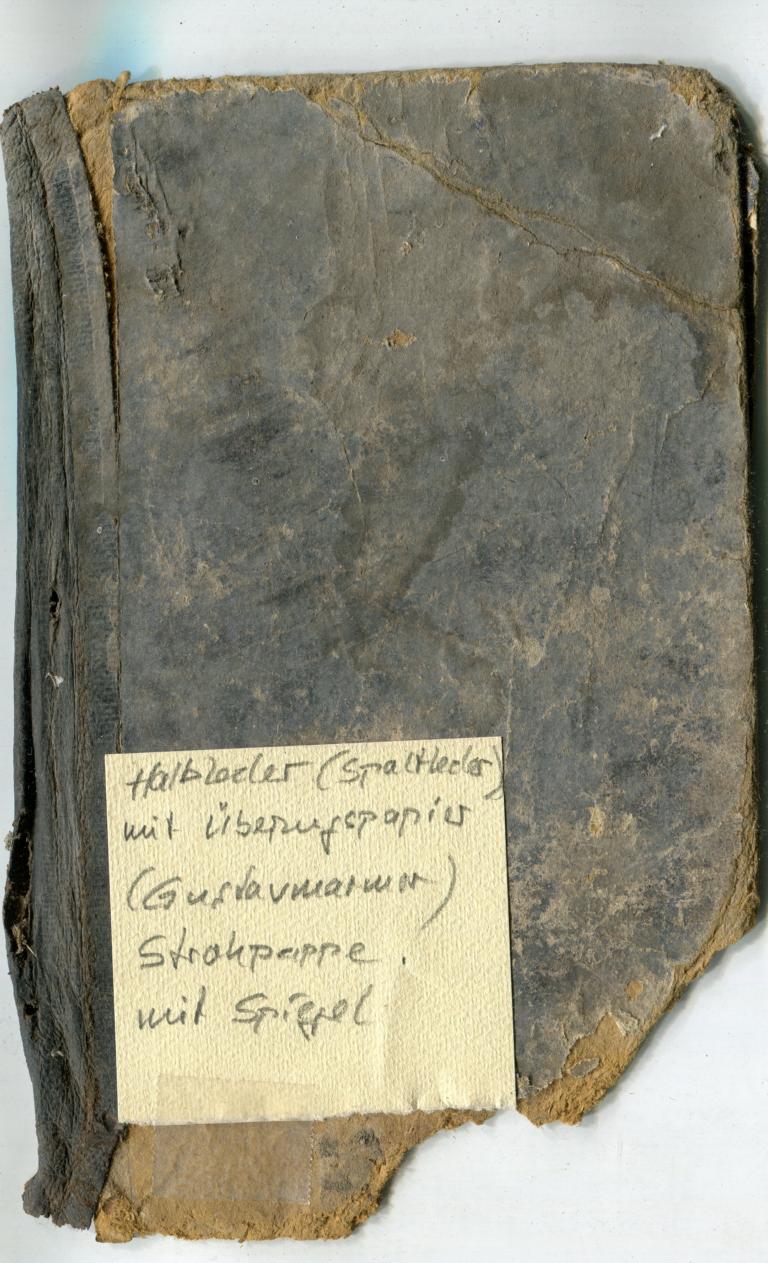 Halbleder (Spaltleder)
mit Überzugspapier
(Gustavmarmor)
Strohpappe.
mit Spiegel